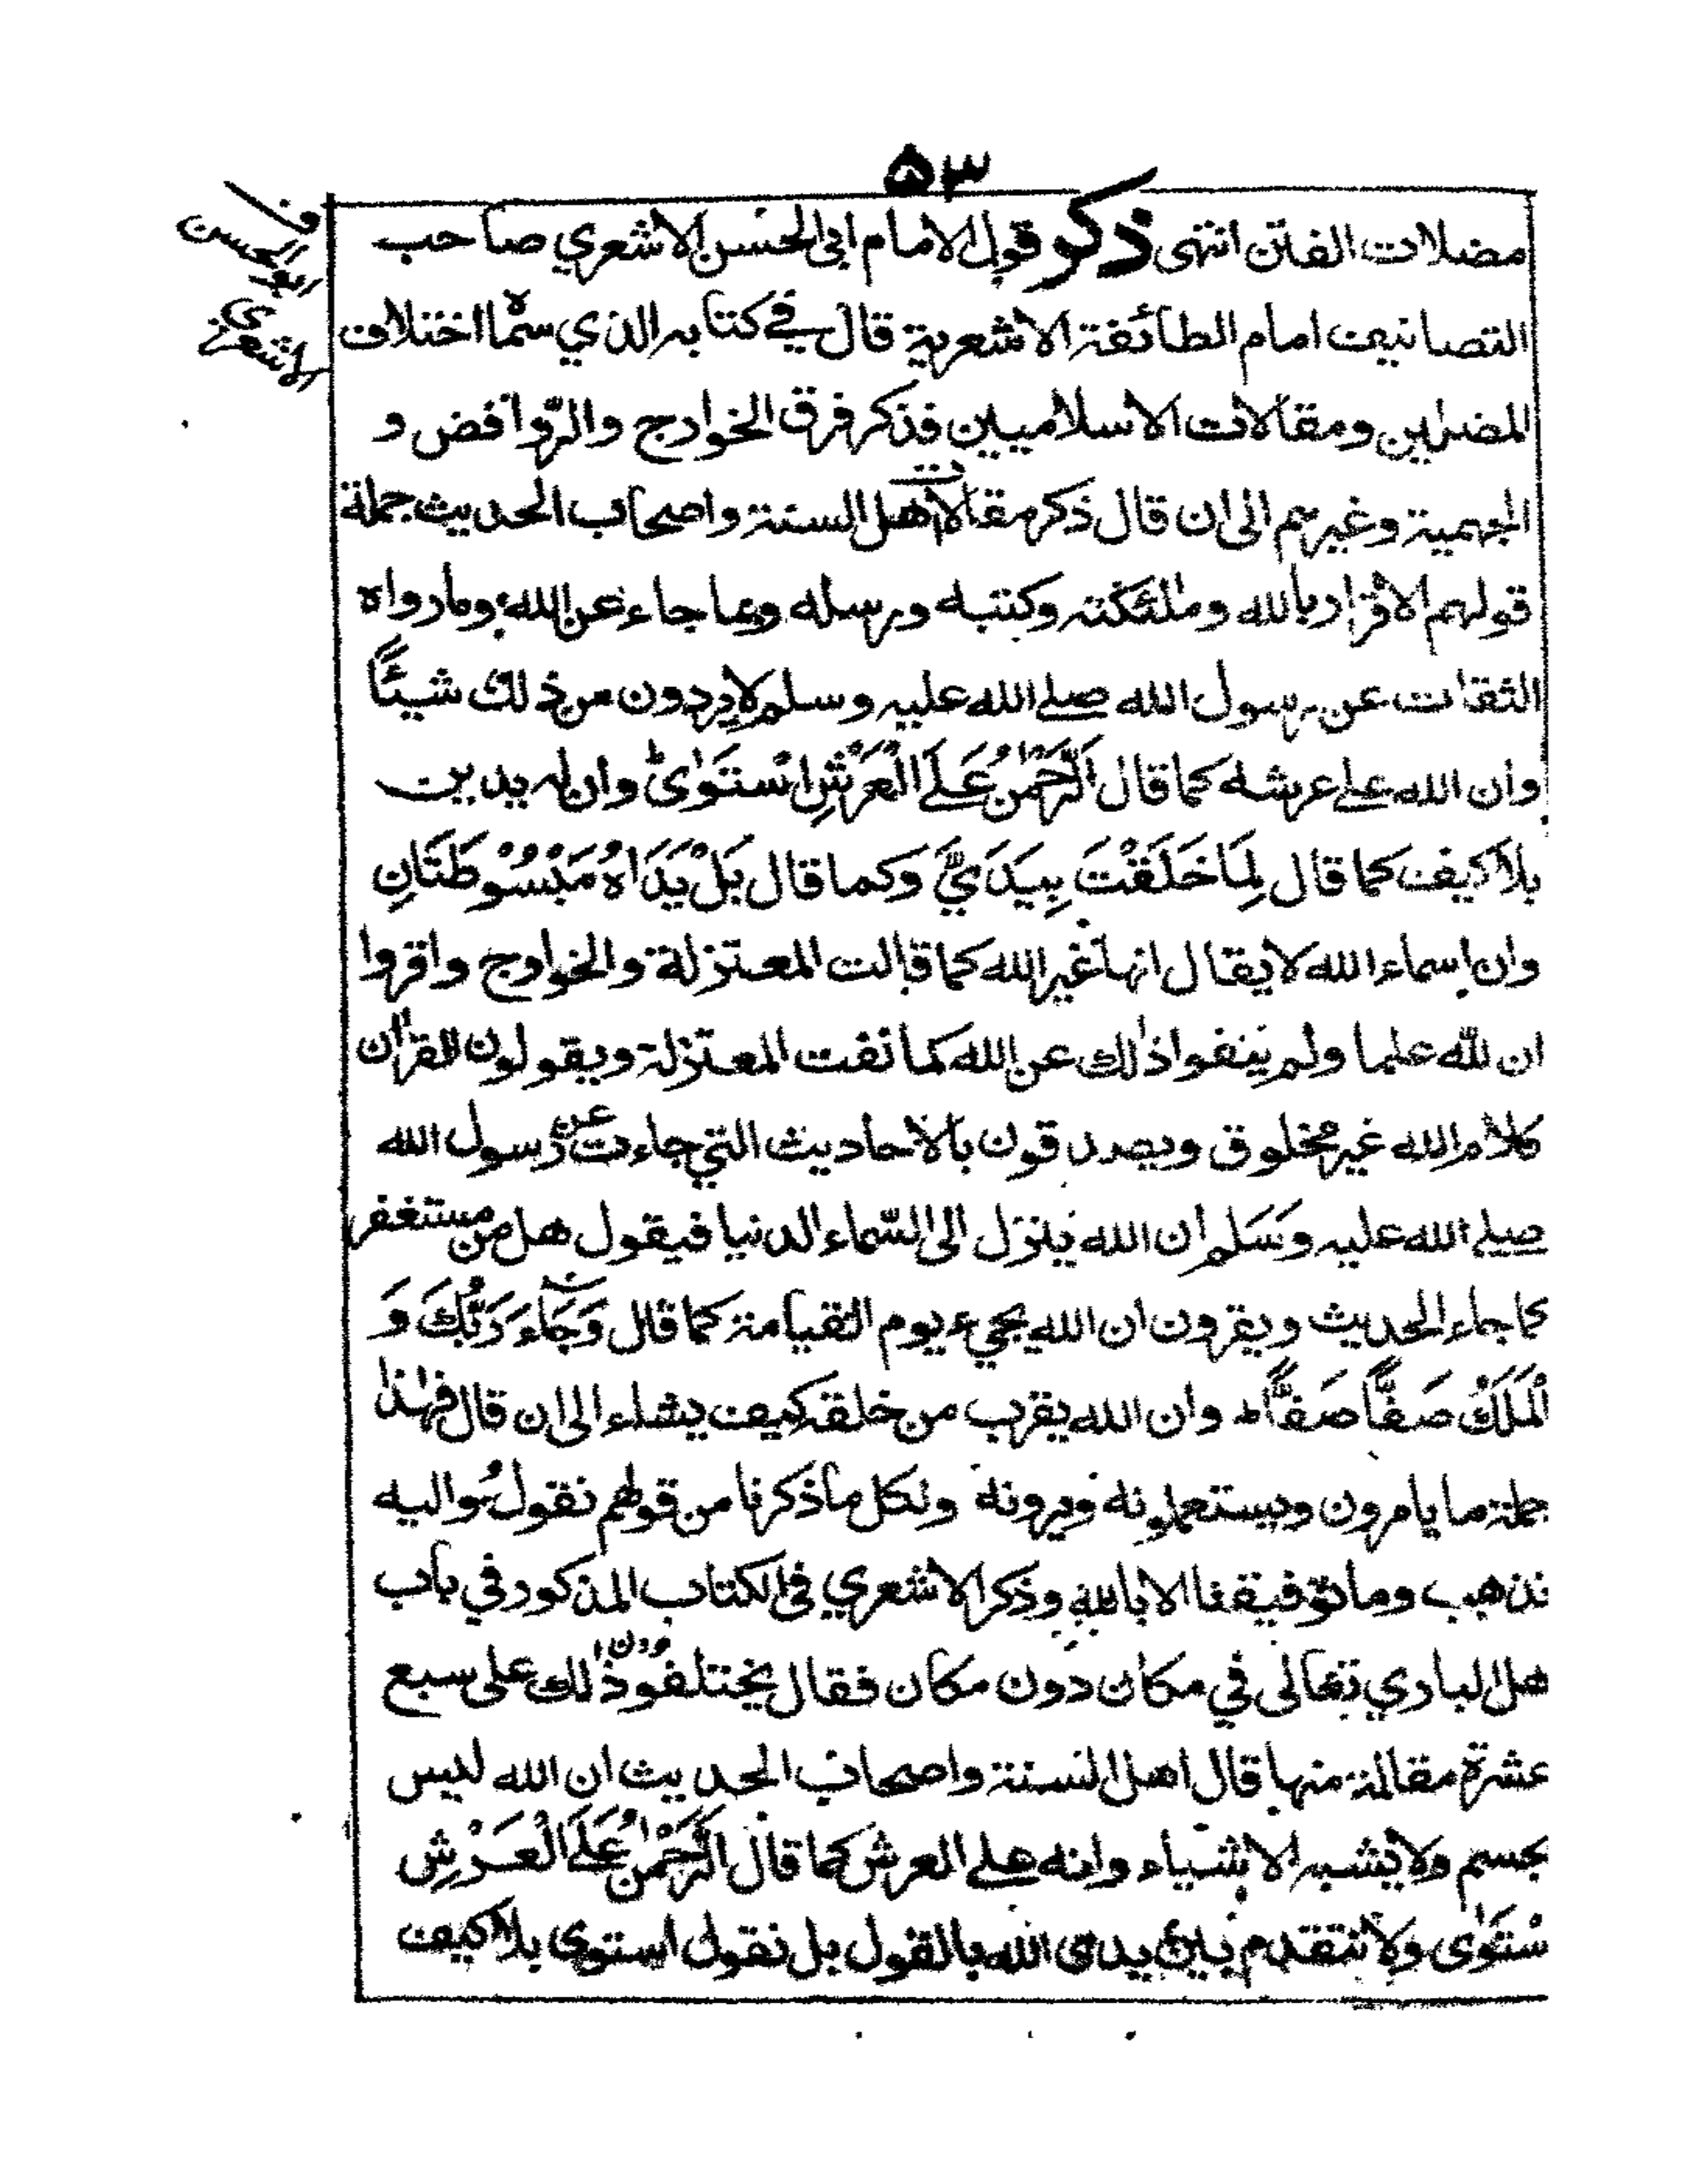 ۵۳
مضلات الفتن انتهى ذكر قول الامام ابى الحسن الاشعري صاحب
التصانيف امام الطائفة الاشعرية قال في كتابه الذي سماه اختلاف
المضلين ومقالات الاسلاميين فذكر فرق الخوارج والرّوافض و
الجهمية وغيرهم الى ان قال ذكر مقالات اهل السنة واصحاب الحديث جملة
قولهم الاقرار بالله وملئكته وكتبه ورسله وبما جاء عن الله وما رواه
الثقات عن رسول الله صلے الله عليه وسلم لا يردون من ذلك شيئًا
وان الله علے عرشه كما قال اَلرَّحْمٰنُ عَلَے الْعَرْشِ اسْتَوٰى وان له يدين
بلا كيف كما قال لِمَا خَلَقْتَ بِيَدَيَّ وكما قال بَلْ يَدَاهُ مَبْسُوْطَتَانِ
وان اسماء الله لا يقال انها غير الله كما قالت المعتزلة والخوارج واقروا
ان لله علما ولم ينفوا ذلك عن الله كما نفت المعتزلة ويقولون القرآن
كلام الله غير مخلوق ويصدقون بالاحاديث التي جاءت عن رسول الله
صلے الله عليه وَسَلم ان الله ينزل الى السّماء الدنيا فيقول هل من مستغفر
كما جاء الحديث ويقرون ان الله يجيء يوم القيامة كما قال وَجَاءَ رَبُّكَ وَ
الْمَلَكُ صَفًّا صَفًّا ط وان الله يقرب من خلقه كيف يشاء الى ان قال فهذا
جملة ما يامرون ويستعملونه ويرونه ولكل ما ذكرنا من قولهم نقول واليه
نذهب وما توفيقنا الا بالله وذكر الاشعري فى الكتاب المذكور في باب
هل الباري تعالى في مكان دون مكان فقال يختلفون ذلك على سبع
عشرة مقالة منها قال اهل السنة واصحاب الحديث ان الله ليس
بجسم ولا يشبه الاشياء وانه علے العرش كما قال اَلرَّحْمٰنُ عَلَے الْعَرْشِ
سْتَوٰى ولا نتقدم بين يدى الله بالقول بل نقول استوى بلا كيف